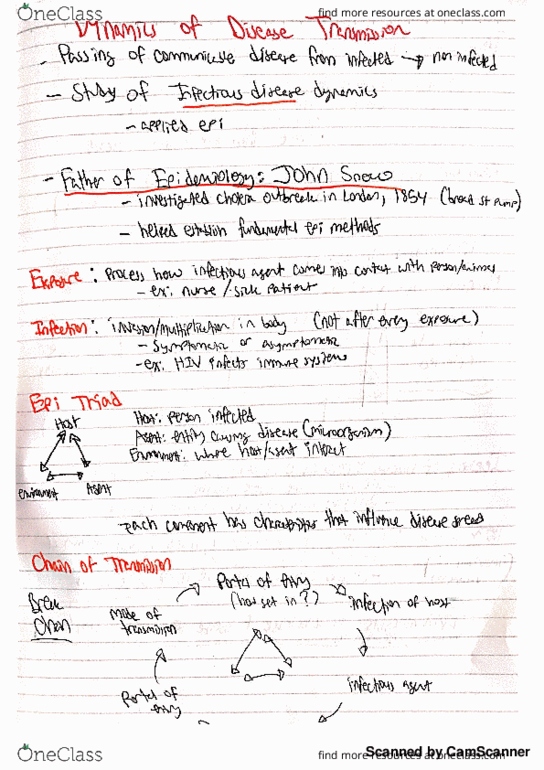 OneClass
find more resources at oneclass.com
Dynamics of Disease Transmission
- Passing of communicable disease from infected → non infected
- Study of Infectious disease dynamics
- applied epi
- Father of Epidemiology: John Snow
- investigated cholera outbreak in London, 1854 (broad st pump)
- helped establish fundamental epi methods
Exposure: Process how infectious agent comes into contact with person/animals
- ex: nurse / sick patient
Infection: invasion/multiplication in body (not after every exposure)
- symptomatic or asymptomatic
- ex: HIV infects immune systems
Epi Triad
Host
Environment
Agent
Host: person infected
Agent: entity causing disease (microorganism)
Environment: where host/agent interact
- each component has characteristics that influence disease spread
Chain of Transmission
Break
Chain
Mode of
transmission
Portal of entry
(how get in?)
infection of host
infectious agent
Portal of
entry
OneClass
find more resources at oneclass.com
Scanned by CamScanner